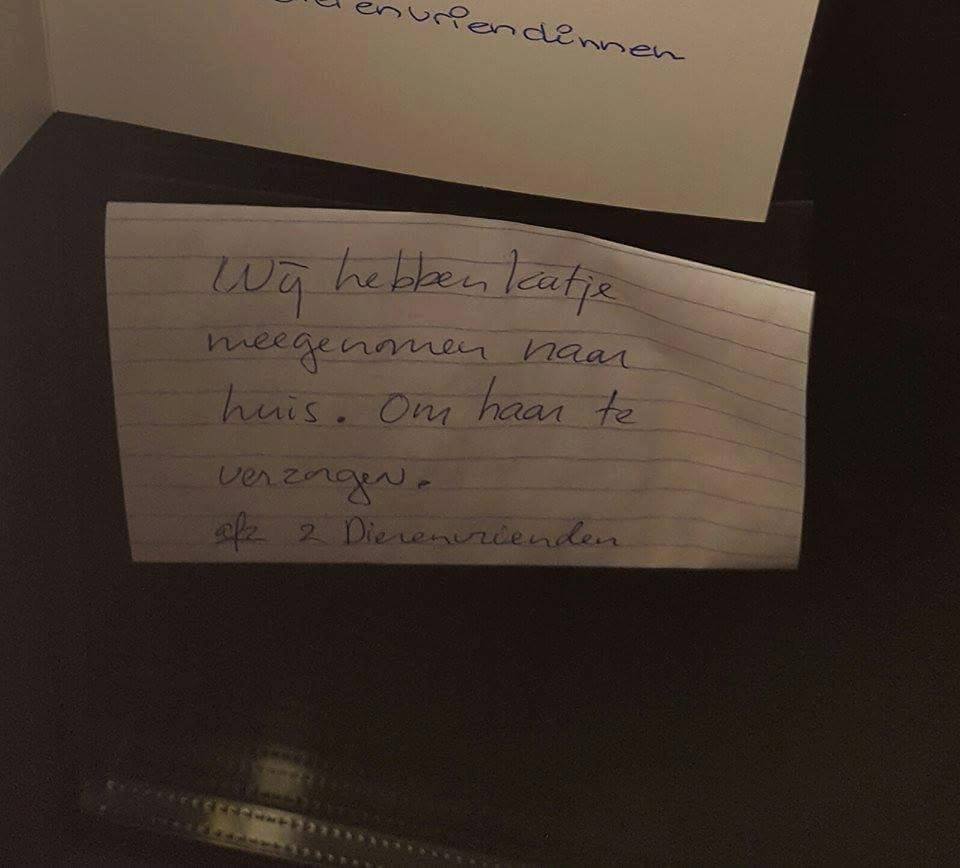 Dierenvriendinnen
Wij hebben katje
meegenomen naar
huis. Om haar te
verzorgen.
afz 2 Dierenvrienden